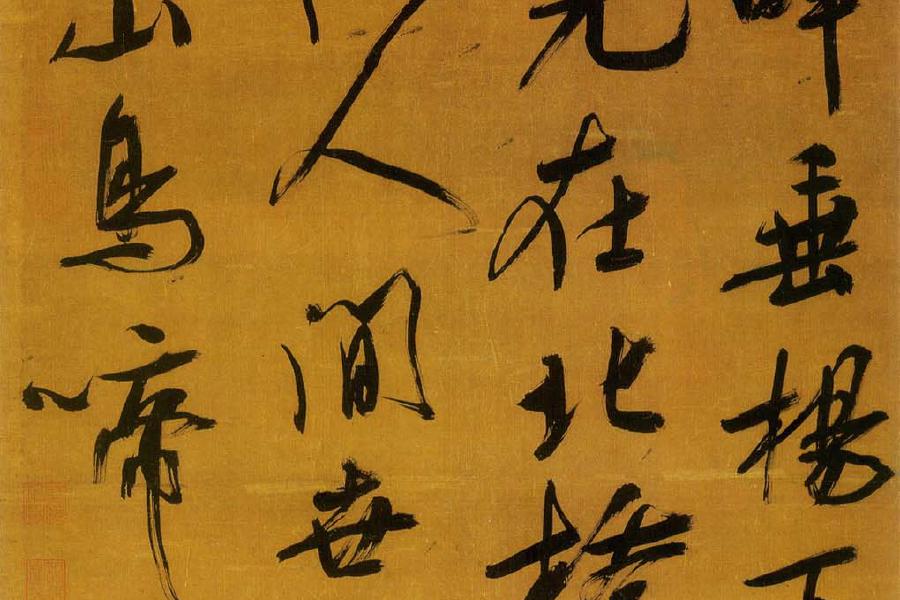 垂楊下
在北
人間世
山鳥啼